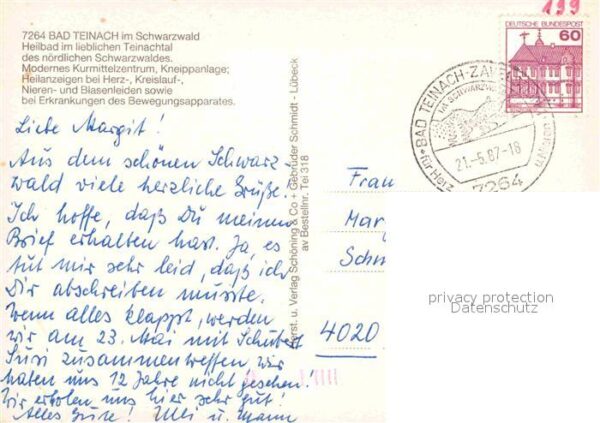 199
7264 BAD TEINACH im Schwarzwald
Heilbad im lieblichen Teinachtal
des nördlichen Schwarzwaldes.
Modernes Kurmittelzentrum, Kneippanlage;
Heilanzeigen bei Herz-, Kreislauf-,
Nieren- und Blasenleiden sowie
bei Erkrankungen des Bewegungsapparates.
DEUTSCHE BUNDESPOST
60
BAD TEINACH-ZAV
IM SCHWARZWALD
21.-5.87-18
7264
Liebe Margit!
Aus dem schönen Schwarz-
wald viele herzliche Grüße.
Ich hoffe, daß Du meinen
Brief erhalten hast. Ja, es
tut mir sehr leid, daß ich
Dir abschreiben mußte.
Wenn alles klappt, werden
wir am 23. Mai mit Schubert
Susi zusammentreffen. Wir
haben uns 12 Jahre nicht gesehen!
Wir erholen uns hier sehr gut!
Alles Gute! Ulli u. Mann
Kunst. u. Verlag Schöning & Co + Gebrüder Schmidt - Lübeck
av Bestellnr. Tei 318
Frau
Mar
Schn
4020
privacy protection
Datenschutz